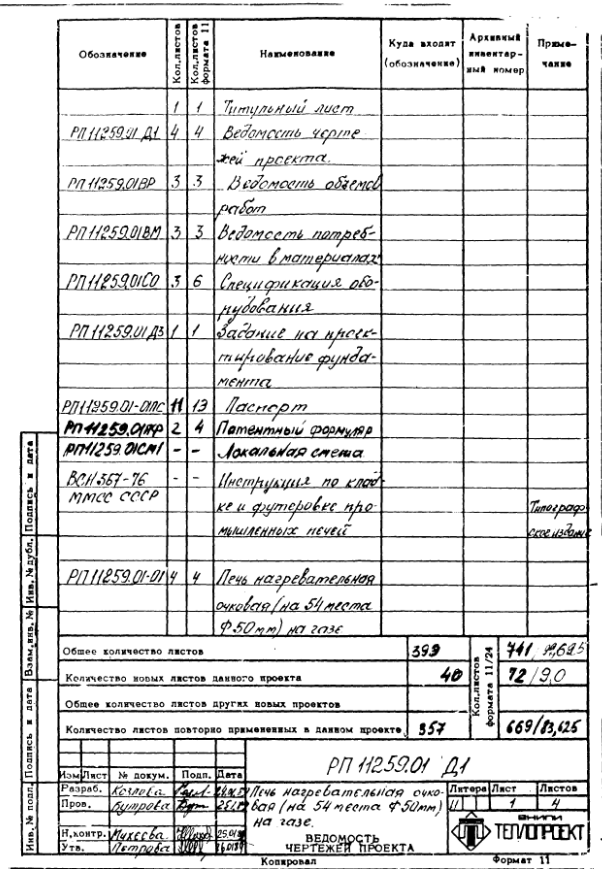 Обозначение Кол.листов Кол.листов формата 11 Наименование Куда входит (обозначение) Архивный инвентарный номер Примечание
1 1 Титульный лист
РП 11259.01 Д1 4 4 Ведомость черте
жей проекта.
РП 11259.01ВР 3 3 Ведомость объемов
работ
РП 11259.01ВМ 3 3 Ведомость потреб-
ности в материалах
РП 11259.01СО 3 6 Спецификация обо-
рудования
РП 11259.01 Д3 1 1 Задание на проек-
тирование фунда-
мента
РП 11259.01-01ПС 11 13 Паспорт
РП 11259.01 2 4 Патентный формуляр
РП 11259.01СМ1 - - Локальная смета
ВСН 367-76 - - Инструкция по клад-
ММСС СССР ке и футеровке про- Типограф
мышленных печей ское издание
РП 11259.01-01 4 4 Печь нагревательная
очковая (на 54 места
Ф50мм) на газе
Общее количество листов 399 Кол.листов формата 11/24 741
Количество новых листов данного проекта 40 72/9,0
Общее количество листов других новых проектов
Количество листов повторно примененных в данном проекте 357 669/83,625
РП 11259.01 Д1
Изм Лист № докум. Подп. Дата
Разраб. Козлова Печь нагревательная очко- Литера Лист Листов
Пров. вая (на 54 места Ф50мм) 1 4
на газе.
Н.контр. Михеева ВЕДОМОСТЬ ВНИПИ
Утв. Петрова ЧЕРТЕЖЕЙ ПРОЕКТА ТЕПЛОПРОЕКТ
Копировал Формат 11
Инв.№ подл. Подпись и дата Взам.инв.№ Инв.№ дубл. Подпись и дата